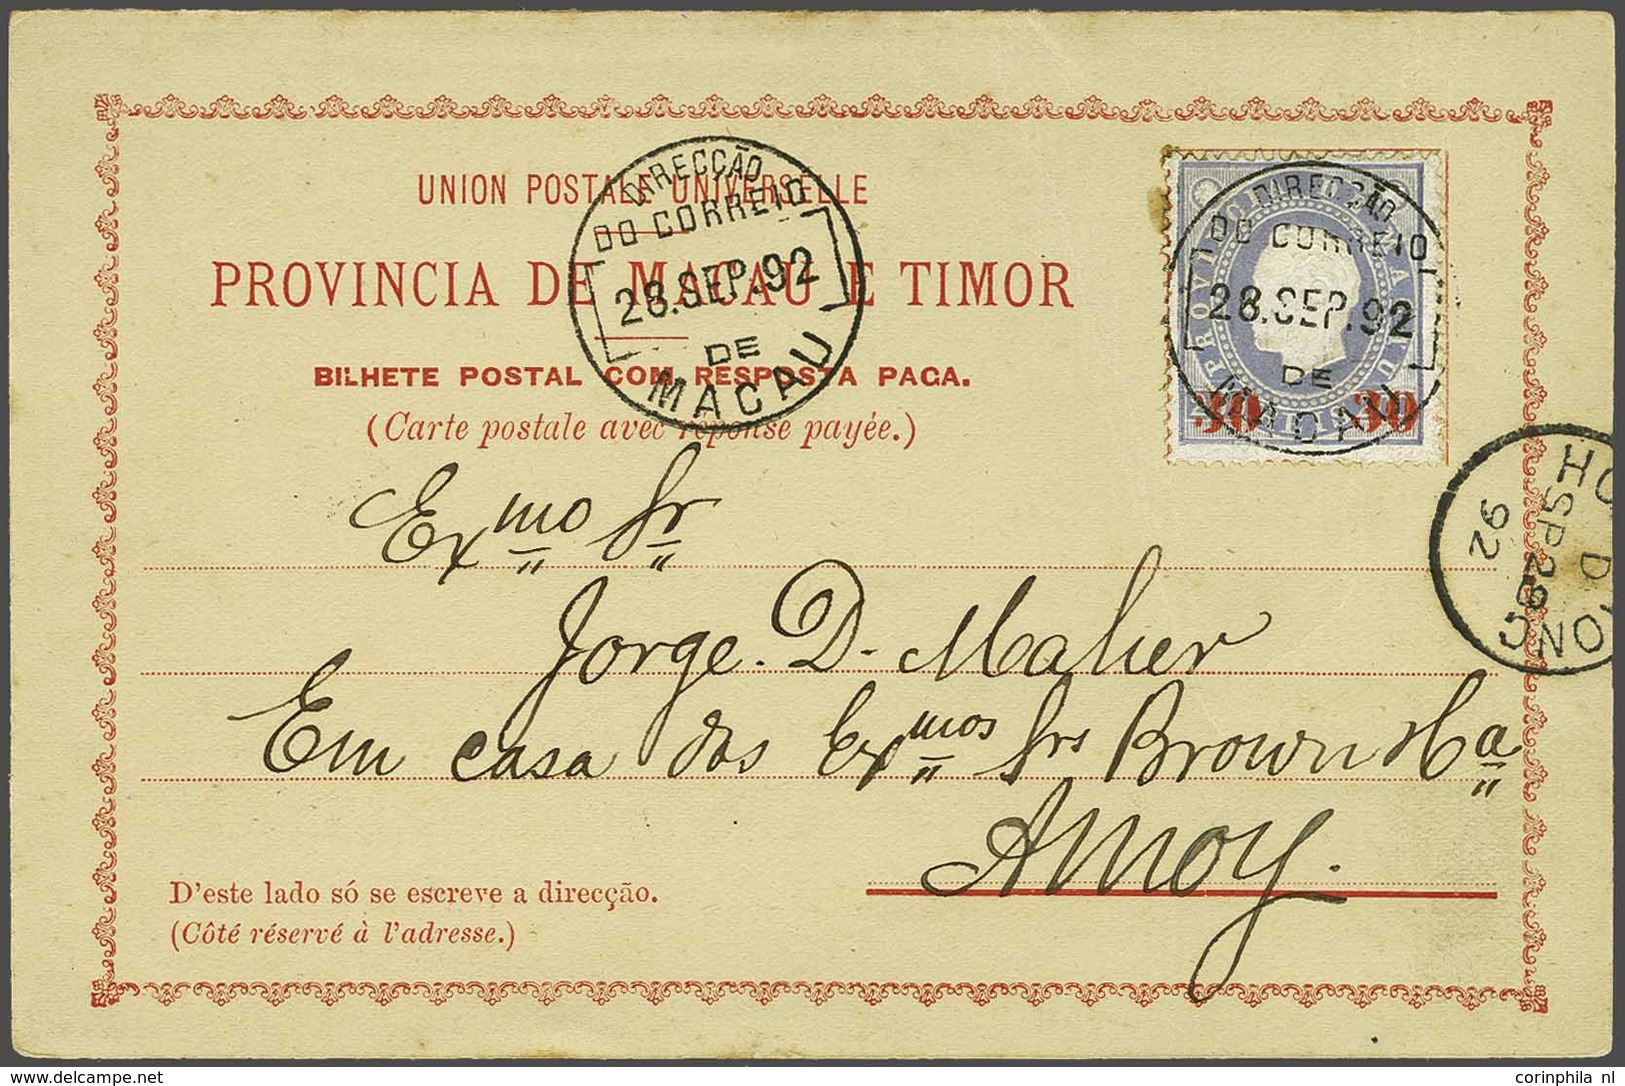 UNION POSTALE UNIVERSELLE
PROVINCIA DE MACAU E TIMOR
BILHETE POSTAL COM RESPOSTA PAGA.
(Carte postale avec réponse payée.)
DIRECÇÃO
DO CORREIO
28.SEP.92
DE
MACAU
DIRECÇÃO
DO CORREIO
28.SEP.92
DE
MACAU
PROVINCIA
30 30
HO
D
SP 29
92
ONG
Exmo Sr
Jorge. D. Maher
Em casa dos Exmos Srs Brown &Ca
Amoy.
D'este lado só se escreve a direcção.
(Côté réservé à l'adresse.)
www.delcampe.net
corinphila nl